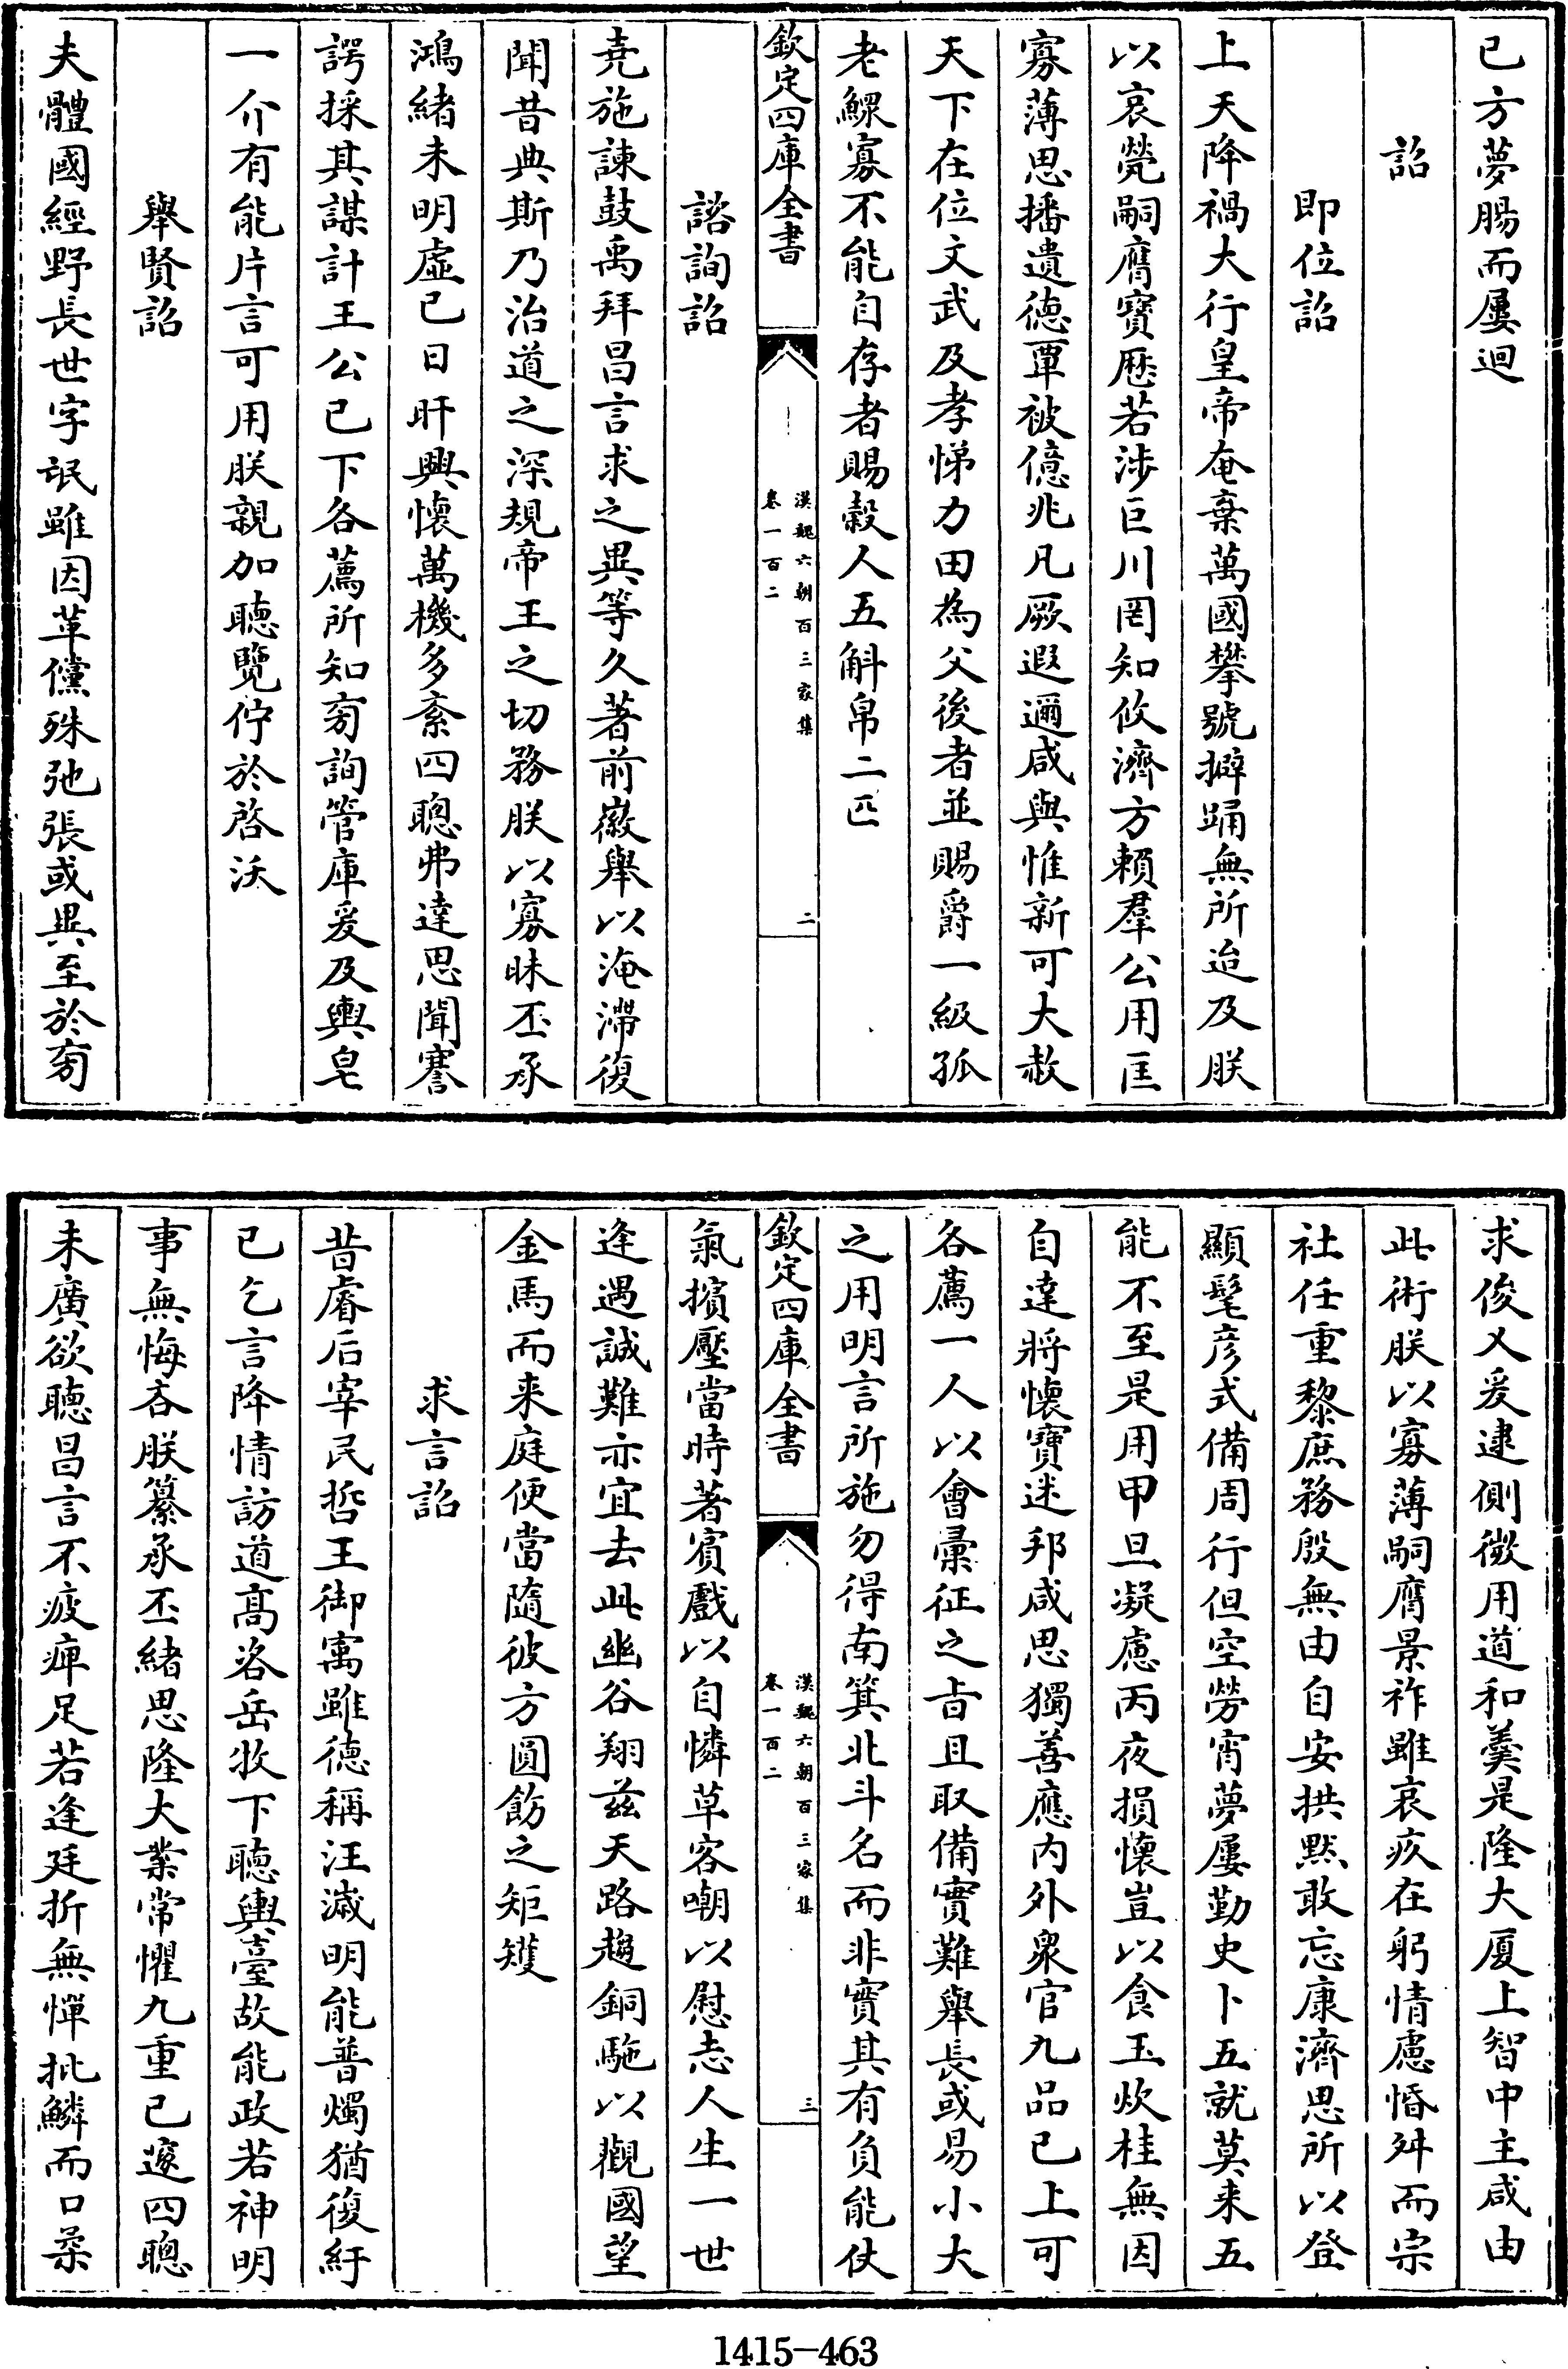 已方夢腸而屢迴
詔
即位詔
上天降禍大行皇帝奄棄萬國攀號擗踊無所迨及朕
以哀煢嗣膺寶厯若涉巨川罔知攸濟方賴羣公用匡
寡薄思播遺德覃被億兆凡厥遐邇咸與惟新可大赦
天下在位文武及孝悌力田為父後者並賜爵一級孤
老鰥寡不能自存者賜穀人五斛帛二匹
欽定四庫全書
漢魏六朝百三家集
卷一百二
二
諮詢詔
尭施諫鼓禹拜昌言求之異等久著前徽舉以淹滯復
聞昔典斯乃治道之深規帝王之切務朕以寡昧丕承
鴻緒未明虛已日旰興懷萬機多紊四聰弗達思聞謇
諤採其謀計王公已下各薦所知旁詢管庫爰及輿皂
一介有能片言可用朕親加聽覽佇於啓沃
舉賢詔
夫體國經野長世字氓雖因革儻殊弛張或異至於旁
求俊乂爰逮側微用道和羹是隆大厦上智中主咸由
此術朕以寡薄嗣膺景祚雖哀疚在躬情慮惛舛而宗
社任重黎庶務殷無由自安拱黙敢忘康濟思所以登
顯髦彦式備周行但空勞宵夢屢勤史卜五就莫來五
能不至是用甲旦凝慮丙夜損懷豈以食玉炊桂無因
自達將懷寶迷邦咸思獨善應内外衆官九品已上可
各薦一人以會彚征之㫖且取備實難舉長或易小大
之用明言所施勿得南箕北斗名而非實其有負能仗
欽定四庫全書
漢魏六朝百三家集
卷一百二
三
氣擯壓當時著賓戲以自憐草客嘲以慰志人生一世
逢遇誠難亦宜去此幽谷翔兹天路趨銅駝以觀國望
金馬而来庭便當隨彼方圓飭之矩矱
求言詔
昔睿后宰民哲王御寓雖德稱汪濊明能普燭猶復紆
已乞言降情訪道髙咨岳牧下聽輿臺故能政若神明
事無悔吝朕纂承丕緒思隆大業常懼九重已邃四聰
未廣欲聽昌言不疲痺足若逢廷折無憚批鱗而口柔
1415-463